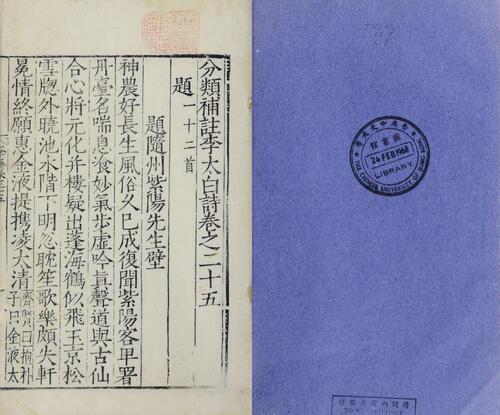 分類補註李太白詩卷之二十五
題一十二首
題隨州紫陽先生壁
神農好長生風俗久已成復聞紫陽客早署
丹臺名喘息飡妙氣步虛吟眞聲道與古仙
合心將元化并樓疑出蓬海鶴似飛玉京松
雪牕外曉池水階下明忽耽笙歌樂頗失軒
冕情終願惠金液提攜凌太清齊賢曰抱朴
子曰金液太
香港中文大學
圖書館
26 FEB 1968
LIBRARY
THE CHINESE UNIVERSITY OF HONG KONG